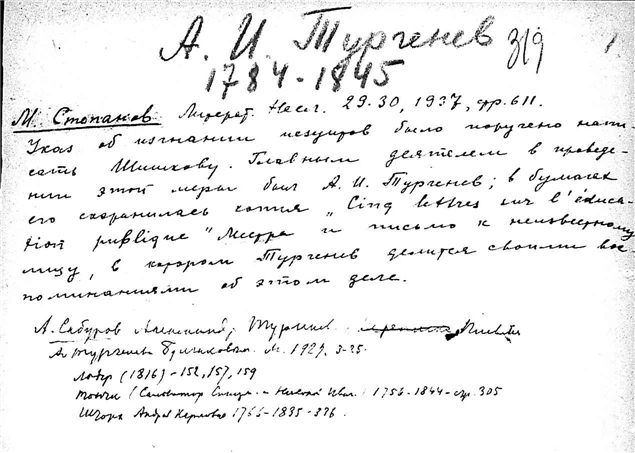 А. И. Тургенев 319 1.
1784-1845
М. Степанов Литерат. Насл. 29-30, 1937, стр. 611.
Указ об изгнании иезуитов было поручено напи-
сать Шишкову. Главным деятелем в проведе-
нии этой меры был А. И. Тургенев; в бумагах
его сохранилась копия „Cinq lettres sur l'éduca-
tion publique" Местра и письмо к неизвестному
лицу, в котором Тургенев делится своими вос-
поминаниями об этом деле.
А. Сабуров Александр Тургенев Письма
А. Тургенева Булгаковым. М. 1929, 3-25.
Лодер (1816) - 152, 157, 159
Тончи (Сальватор - Николай Иван.) 1756-1844 - стр. 305
Шторх Андрей Карлович 1766-1835 - 336.